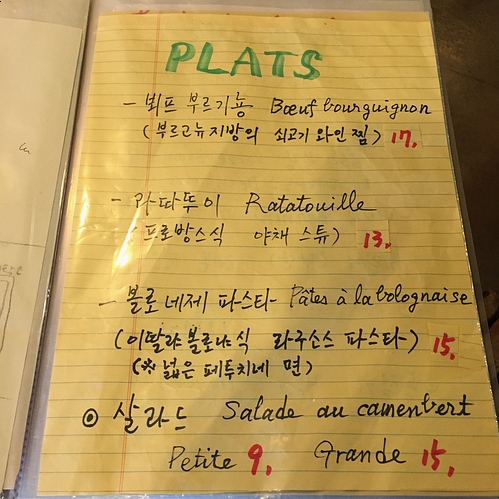 PLATS
- 뵈프 부르기뇽 Bœuf bourguignon
(부르고뉴 지방의 쇠고기 와인 찜) 17.
- 라따뚜이 Ratatouille
(프로방스식 야채 스튜) 13.
- 볼로네제 파스타- Pâtes à la bolognaise
(이딸랴 볼로냐식 라구소스 파스타) 15.
(※ 넓은 페투치네 면)
◎ 살라드 Salade au camembert
Petite 9. Grande 15.